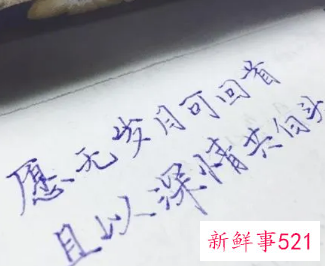 愿无岁月可回首
且以深情共白头
新鲜事521